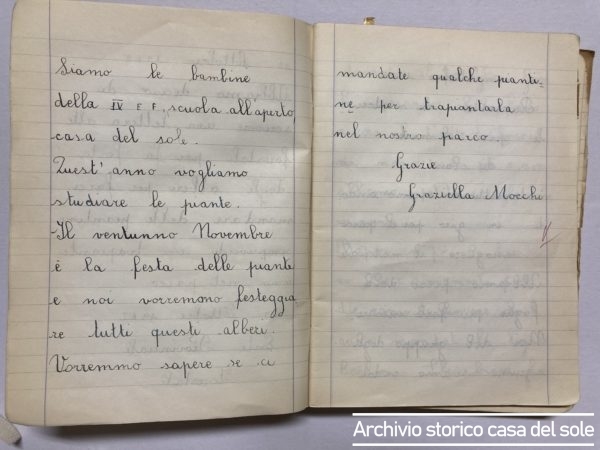 Siamo le bambine
della IV E F, scuola all'aperto
casa del sole.
Quest'anno vogliamo
studiare le piante.
Il ventunno Novembre
è la festa delle piante
e noi vorremono festeggia
re tutti questi alberi.
Vorremmo sapere se ci
mandate qualche pianti-
ne per trapiantarla
nel nostro parco.
Grazie
Graziella Mocchi
Archivio storico casa del sole